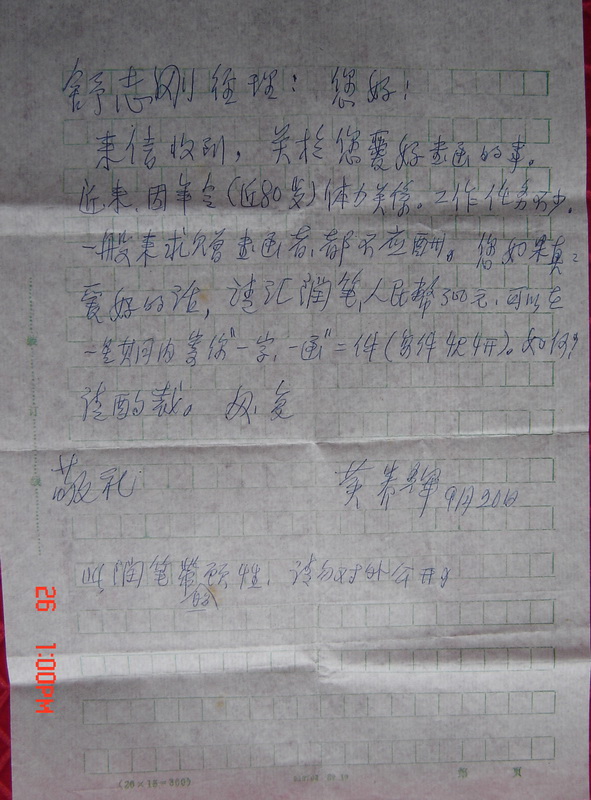 舒志刚经理：您好！
来信收到，关於您爱好书画的事。
近来，因年令（近80岁）体力关係。工作任务不少，
一般来求赠书画者，都不应酬。您如果真
爱好的话，请汇润笔，人民币300元，可以在
一星期内寄你“一字，一画”二件（每件4尺4开）。如何？
请酌裁。 勿复
敬礼 9月20日
此润笔 照顾性，请勿对外公开
的
26 1:00PM
(20×15=300) 第 页